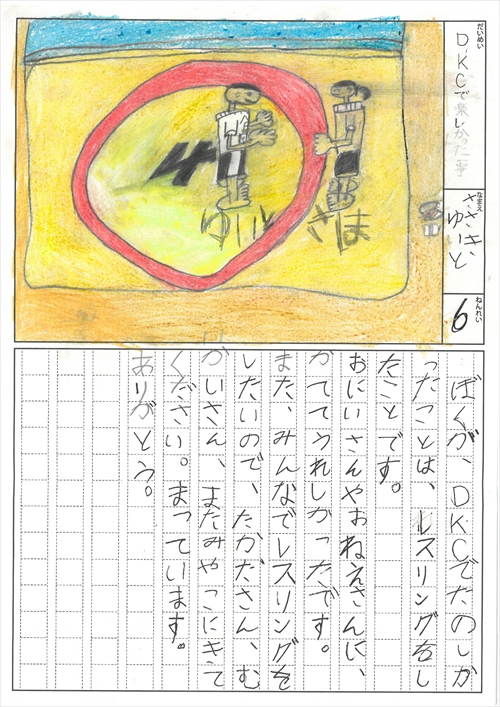 だいめい
DKCで楽しかった事
なまえ
ささき、
ゆいと
ねんれい
6
4
ゆいと
きほ
ぼくが、DKCでたのしか
ったことは、レスリングをし
たことです。
おにいさんやおねえさんに、
かててうれしかったです。
また、みんなでレスリングを
したいので、たかださん、む
かいさん、またみやこにきて
ください。まっています。
ありがとう。